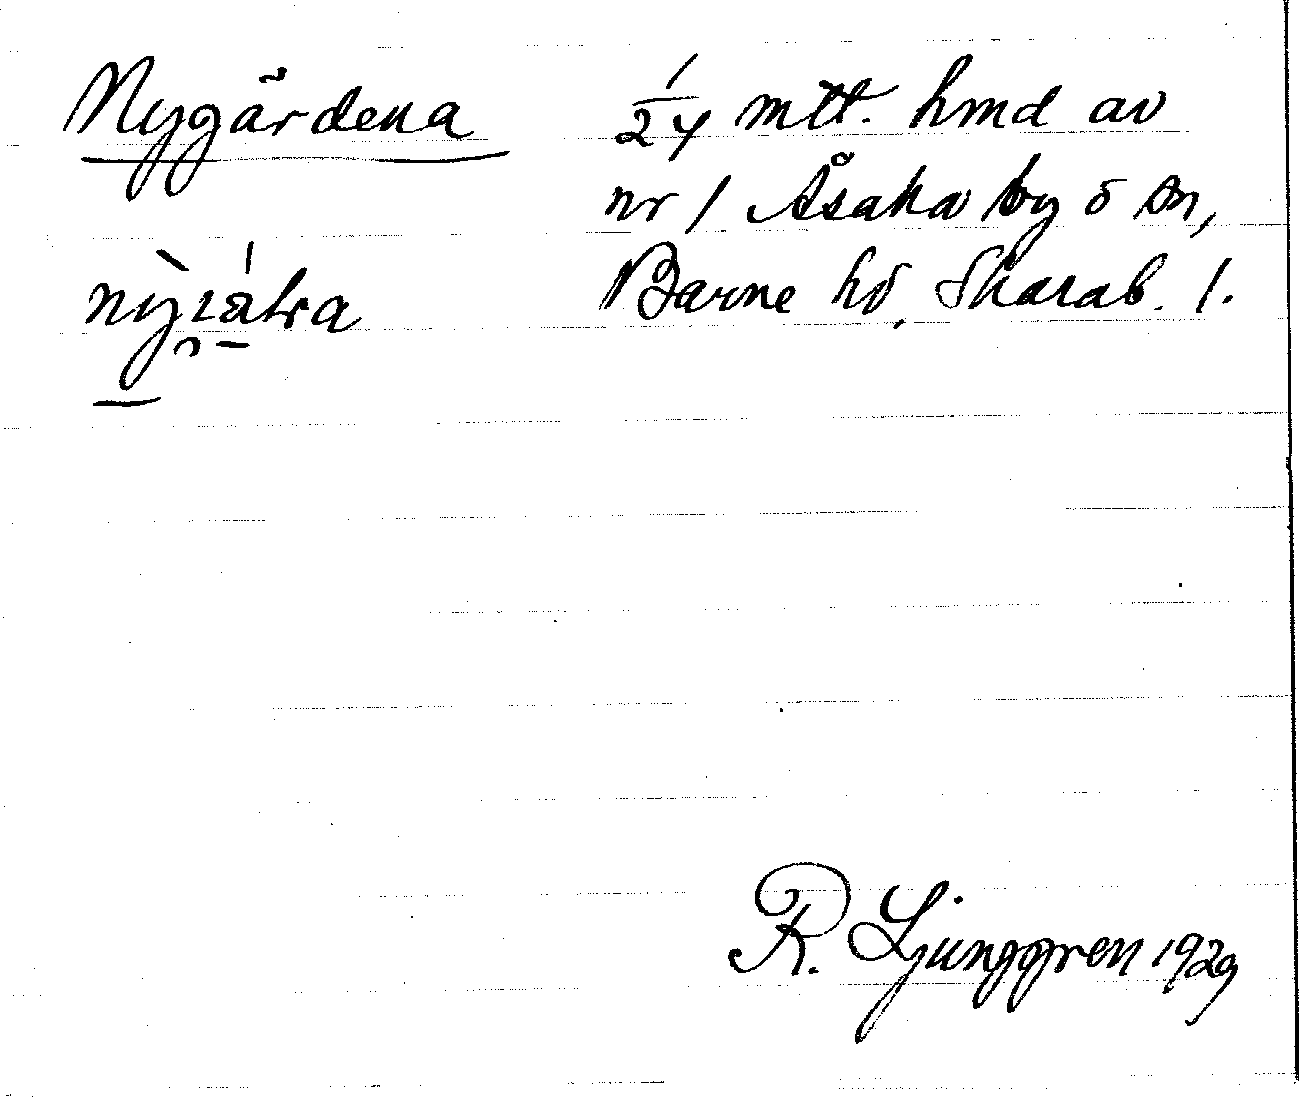 Nygårdena 1/24 mtt. hmd av
nr 1 Åsaka by o sn,
Barne hd, Skarab. l.
R. Ljunggren 1929